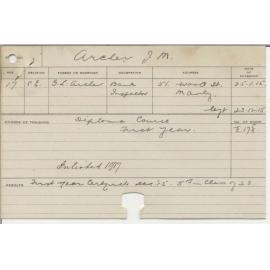 Archer J. M.
AGE RELIGION PARENT OR GUARDIAN OCCUPATION ADDRESS DATE OF ENTRANCE
17 C.E. G.L. Archer Bank Inspector 51 Wood St. Manly 25.1.15
left 23.12.15
COURSE OF TRAINING Diploma Course
First Year.
Enlisted 1917
RESULTS First year Certificate 5th in class of 23